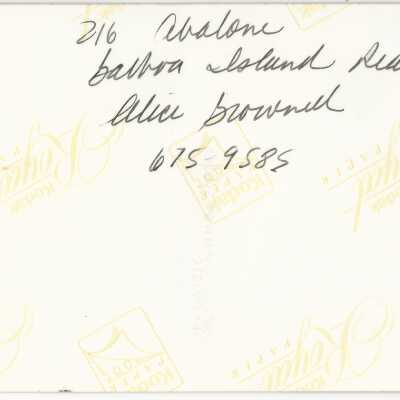 216 Abalone
Balboa Island
Alice Brownell
675-9585
Kodak
Royal
PAPER
Kodak
Royal
PAPER
Kodak
PAPER
Kodak
PAPER
Royal
PAPER